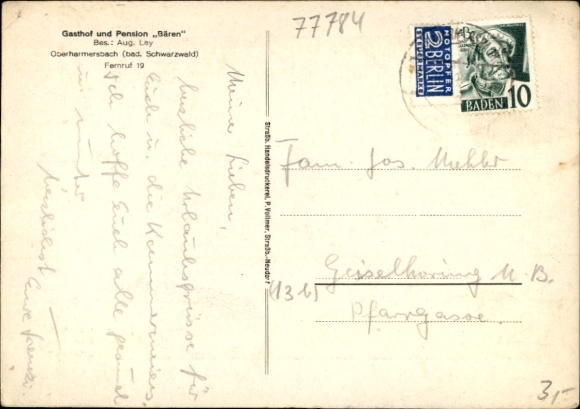 Gasthof und Pension „Bären"
Bes.: Aug. Ley
Oberharmersbach (bad. Schwarzwald)
Fernruf 19
77784
NOTOPFER
2 BERLIN
STEUERMARKE
BADEN 10
Meine Lieben,
herzliche Urlaubsgrüsse für
Euch u. die
Ich hoffe Euch alle gesund
u. munter
herzlichst Eure
Straßb. Handelsdruckerei, P. Vollmer, Straßb.-Neudorf
Fam. Jos. Mehler
(13b)
Geiselhöring N. B.
Pfargasse
3,-